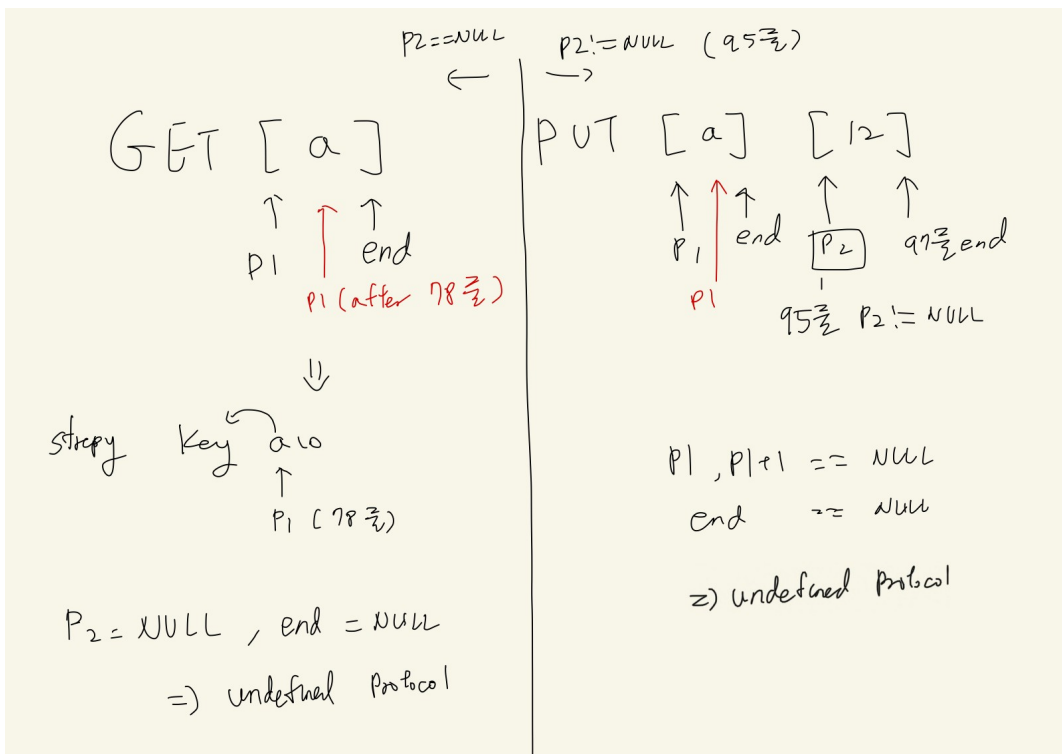 P2==NULL
P2!=NULL (95줄)
GET [ a ]
P1
end
P1 (after 78줄)
strcpy Key a\0
P1 (78줄)
P2 = NULL , end = NULL
=) undefined Protocol
PUT [ a ] [ 12 ]
P1
end
P2
97줄 end
P1
95줄 P2 != NULL
P1 , P1+1 == NULL
end == NULL
=) undefined Protocol